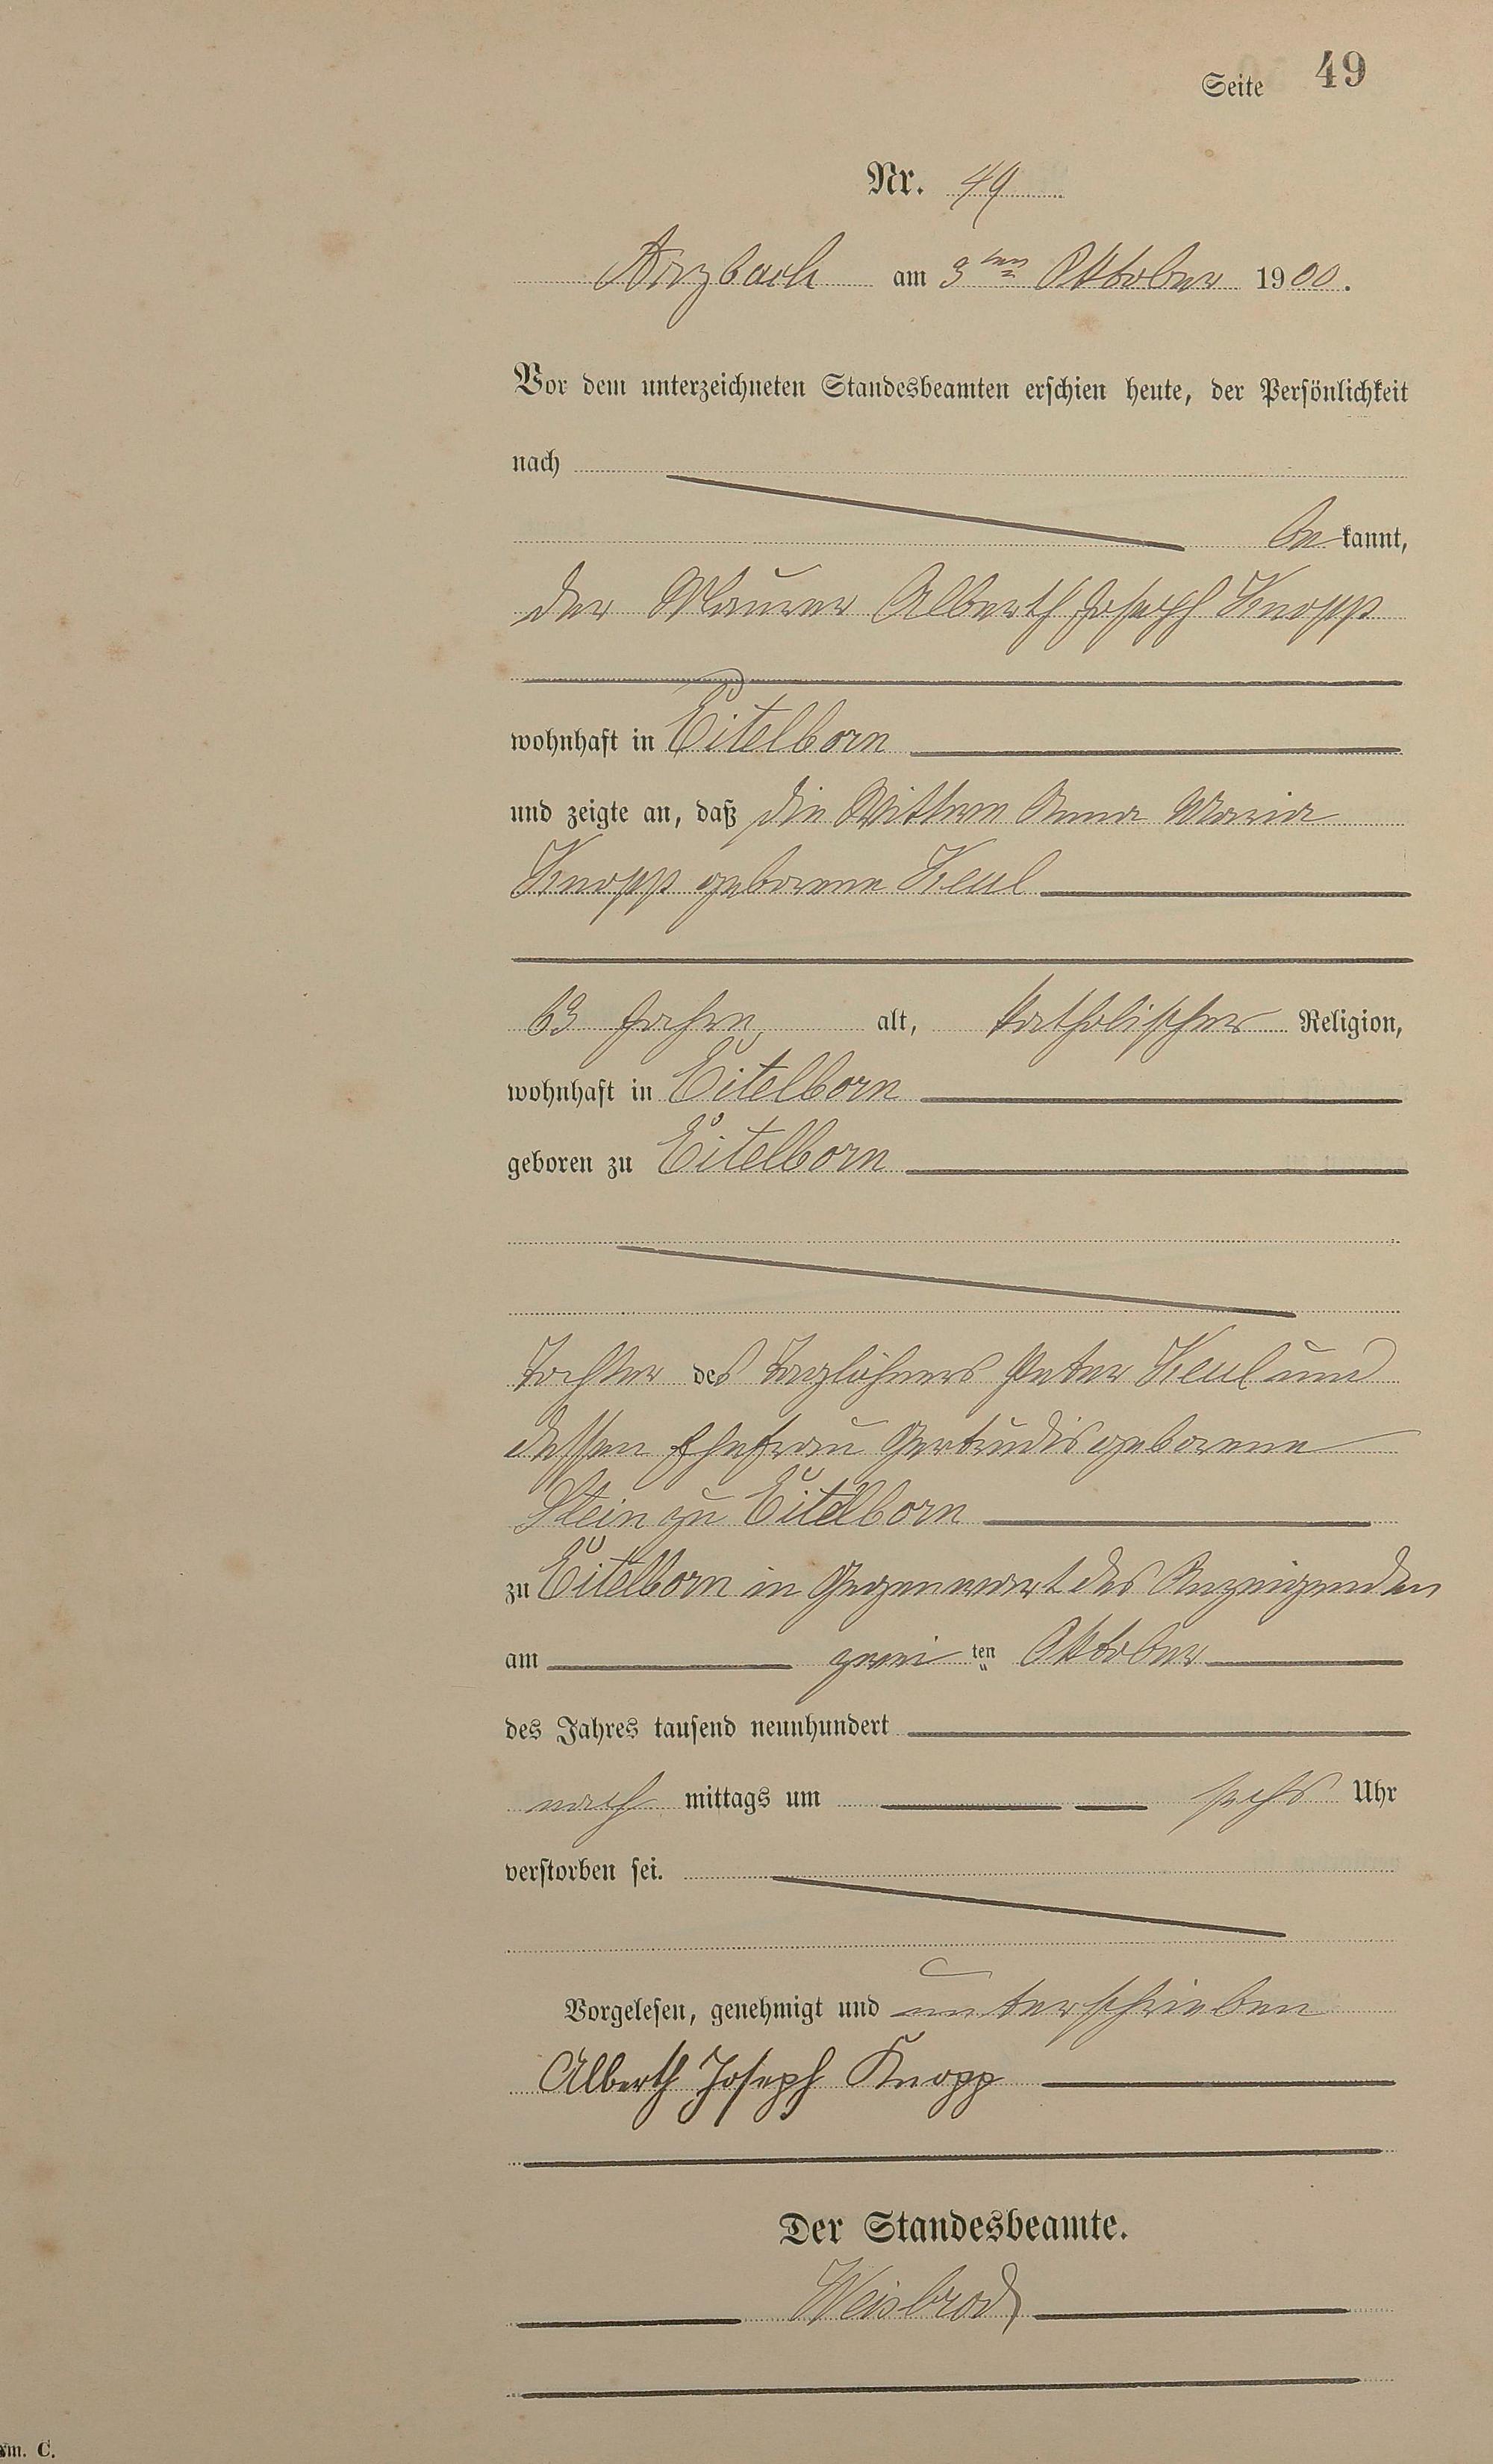 Seite 49
Nr. 49
Arzbach am 3ten Oktober 1900.
Vor dem unterzeichneten Standesbeamten erschien heute, der Persönlichkeit
nach
be kannt,
der Maurer Alberth Joseph Knopp
wohnhaft in Eitelborn
und zeigte an, daß die Wittwe Anna Maria
Knopp geborene Keul
63 Jahre, alt, katholischer Religion,
wohnhaft in Eitelborn
geboren zu Eitelborn
Tochter des Taglöhners Peter Keul und
dessen Ehefrau Gertrudis geborene
Stein zu Eitelborn
zu Eitelborn in Gegenwart des Anzeigenden
am zwei ten Oktober
des Jahres tausend neunhundert
nach mittags um sechs Uhr
verstorben sei.
Vorgelesen, genehmigt und unterschrieben
Alberth Joseph Knopp
Der Standesbeamte.
Weisbrod
rm. C.